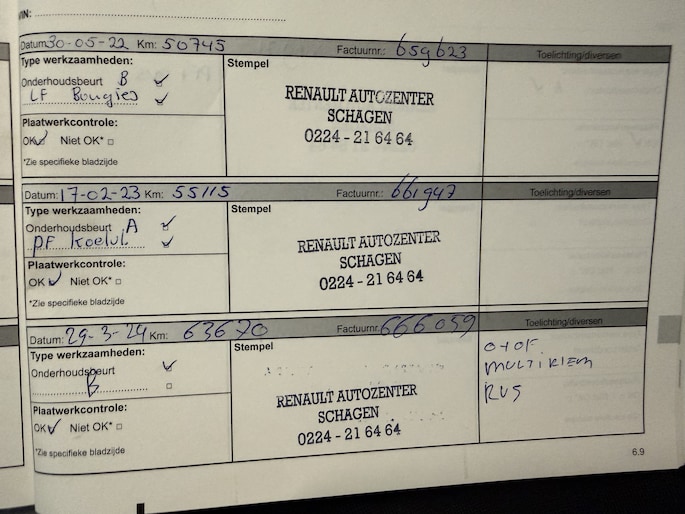 VIN:
Datum: 30-05-22 Km: 50745 Factuurnr.: 659623 Toelichting/diversen
Type werkzaamheden:
Stempel
Onderhoudsbeurt B
LF Bougies
Plaatwerkcontrole:
OK Niet OK*
*Zie specifieke bladzijde
RENAULT AUTOZENTER
SCHAGEN
0224 - 21 64 64
Datum: 17-02-23 Km: 55115 Factuurnr.: 661947 Toelichting/diversen
Type werkzaamheden:
Stempel
Onderhoudsbeurt A
PF Koelvl.
Plaatwerkcontrole:
OK Niet OK*
*Zie specifieke bladzijde
RENAULT AUTOZENTER
SCHAGEN
0224 - 21 64 64
Datum: 29-3-24 Km: 63670 Factuurnr.: 666059 Toelichting/diversen
Type werkzaamheden:
Stempel
Onderhoudsbeurt
B
Plaatwerkcontrole:
OK Niet OK*
*Zie specifieke bladzijde
RENAULT AUTOZENTER
SCHAGEN
0224 - 21 64 64
O+OF
MULTIRIEM
RVS
6.9